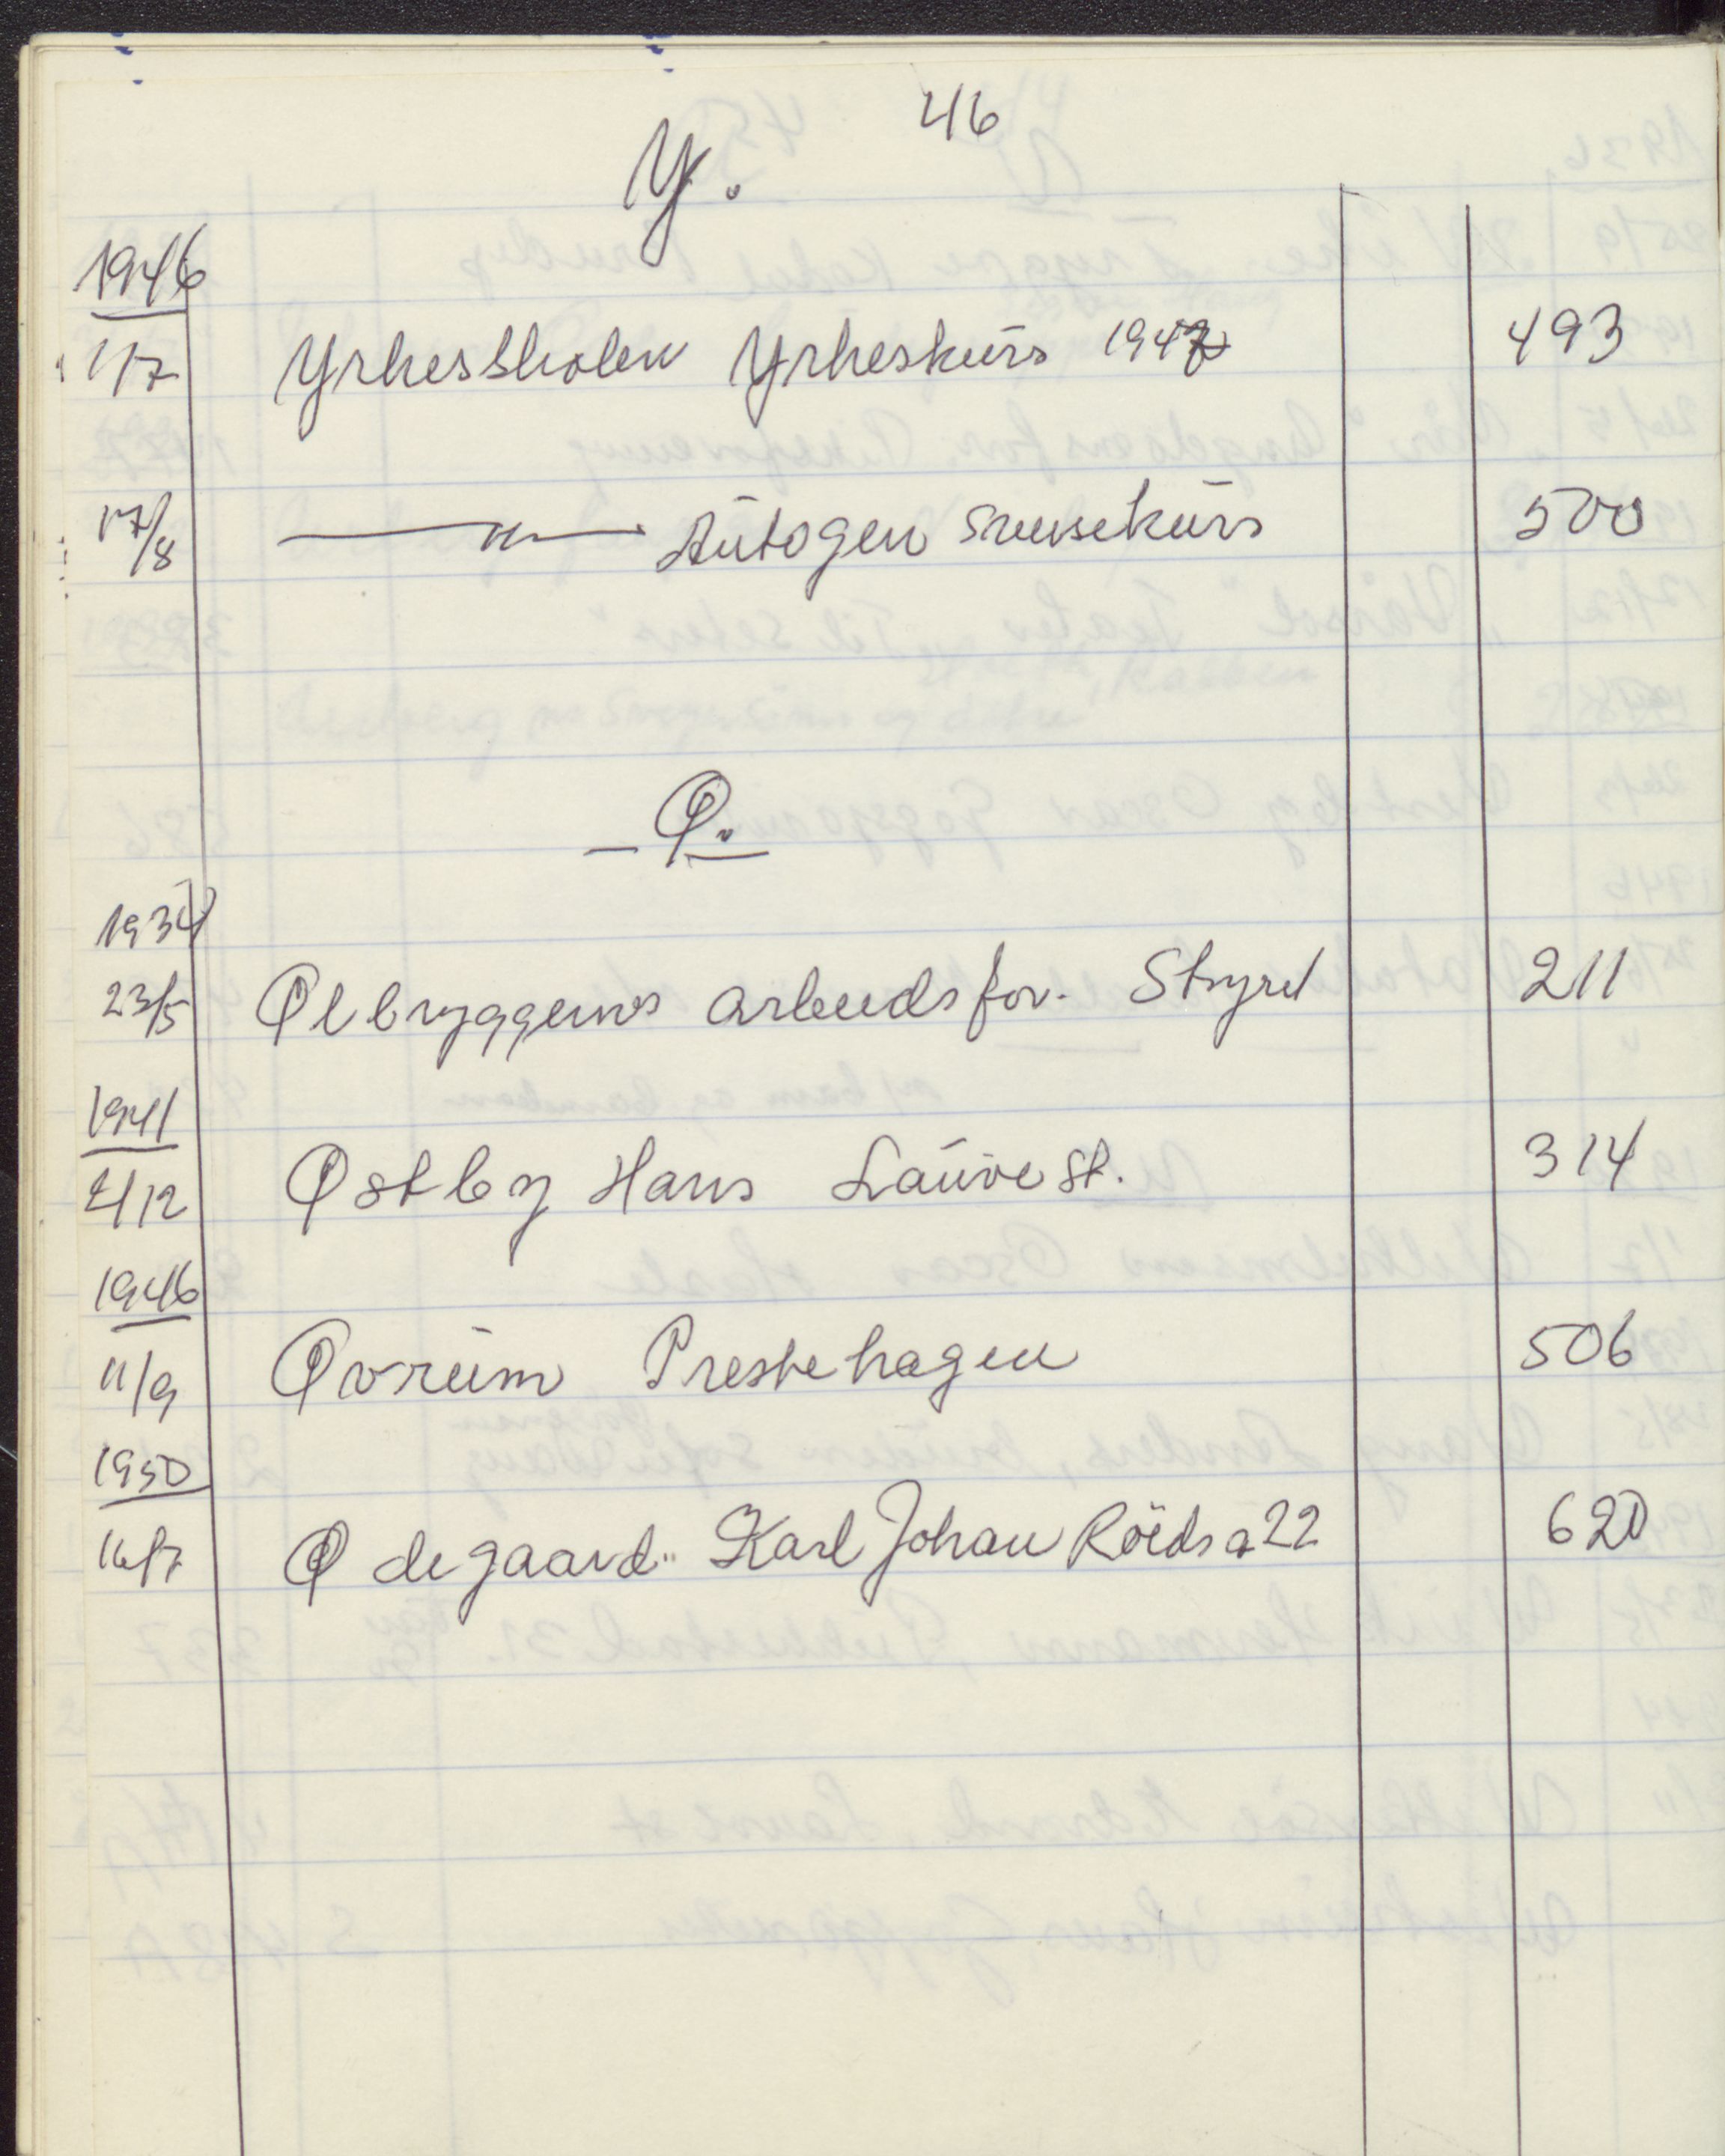 46
Y.
1946
1/7 Yrkesskolen Yrkeskurs 1947 493
17/8 —〃— Autogen sveisekurs 500
- Ø. -
1934
23/5 Ølbryggernes arbeidsfor. Styret 211
1941
2/12 Østby Hans Lauve st. 314
1946
11/9 Øvrum Prestehagen 506
1950
16/7 Ødegaard Karl Johan Röids a 22 620